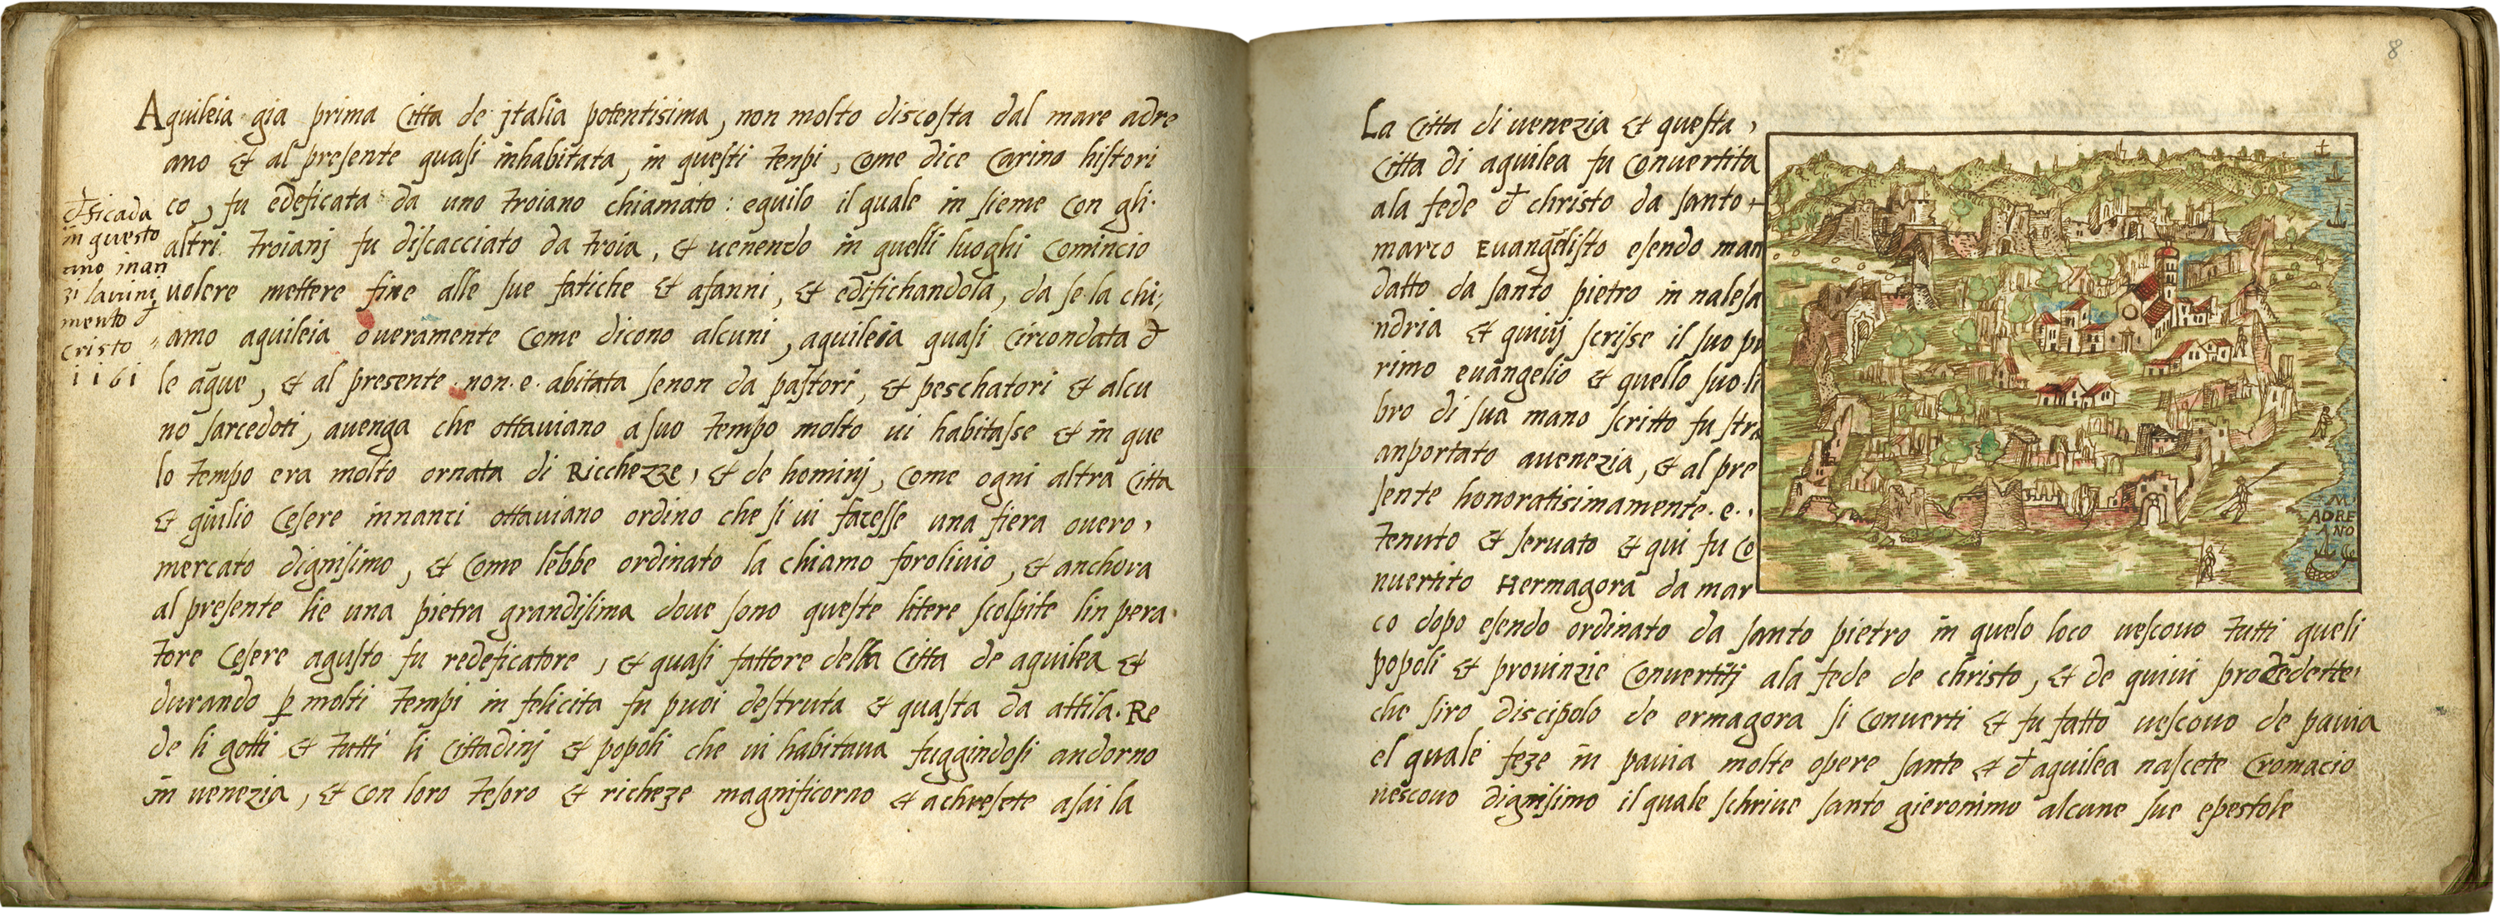 Aquileia gia prima Citta de jtalia potentisima, non molto discosta dal mare adre
ano et al presente quasi inhabitata, in questi tenpi, Come dice Carino histori
co, fu edeficata da uno troiano chiamato: equilo il quale in sieme Con gli.
altri troianj fu discacciato da troia, et uenendo in quelli luoghi Comincio
uolere mettere fine alle sue fatiche et afanni, et edifichandola, da se la chi,
amo aquileia oueramente Come dicono alcuni, aquileia quasi Circondata đ
le aque, et al presente. non. e. abitata senon da pastori, et peschatori et alcu
no sarcedoti, auenga che ottauiano a suo tempo molto ui habitasse et in que
lo tempo era molto ornata di Ricchezze, et de hominj, Come ogni altra Citta
et giulio Cesere innanzi ottauiano ordino che si ui facesse una fiera ouero,
mercato dignisimo, et Come lebbe ordinato la chiamo foroliuio, et anchora
al presente lie una pietra grandisima doue sono queste litere scolpite lin pera
tore Cesere agusto fu redeficatore, et quasi fattore della Citta de aquilea et
durando p molti tempi in felicita fu puoi destruta et quasta da attila. Re
de li gotti et tutti li Cittadinj et popoli che ui habitaua fuggindosi andorno
in uenezia, et Con loro tesoro et richeze magnificorno et achresete asai la
đsicada
in questo
ano inan
zi lauini
mento đ
cristo
1161
8
La Citta di uenezia et questa,
Citta di aquilea fu Conuertita
ala fede đ christo da santo
marco Euangelisto esendo man
datto da santo pietro in nalesa
ndria et quiuj scrisse il suo pu
rimo euangelio et quello suo li
bro di sua mano scritto fu stra
anportato auenezia, et al pre
sente honoratisimamente. e.
tenuto et seruato et qui fu Co
nuertito Hermagora da mar
co dopo esendo ordinato da santo pietro in quelo loco uescouo tutti queli
popoli et prouinzie Conuertitj ala fede de christo, et de quiui procedette,
che siro discipolo de ermagora si Conuerti et fu fatto uescouo de pauia
el quale feze in pauia molte opere sante et đ aquilea nascete Cromacio
uescouo dignisimo il quale schriue santo gieronimo alcune sue epestole
M
ADRE
ANO